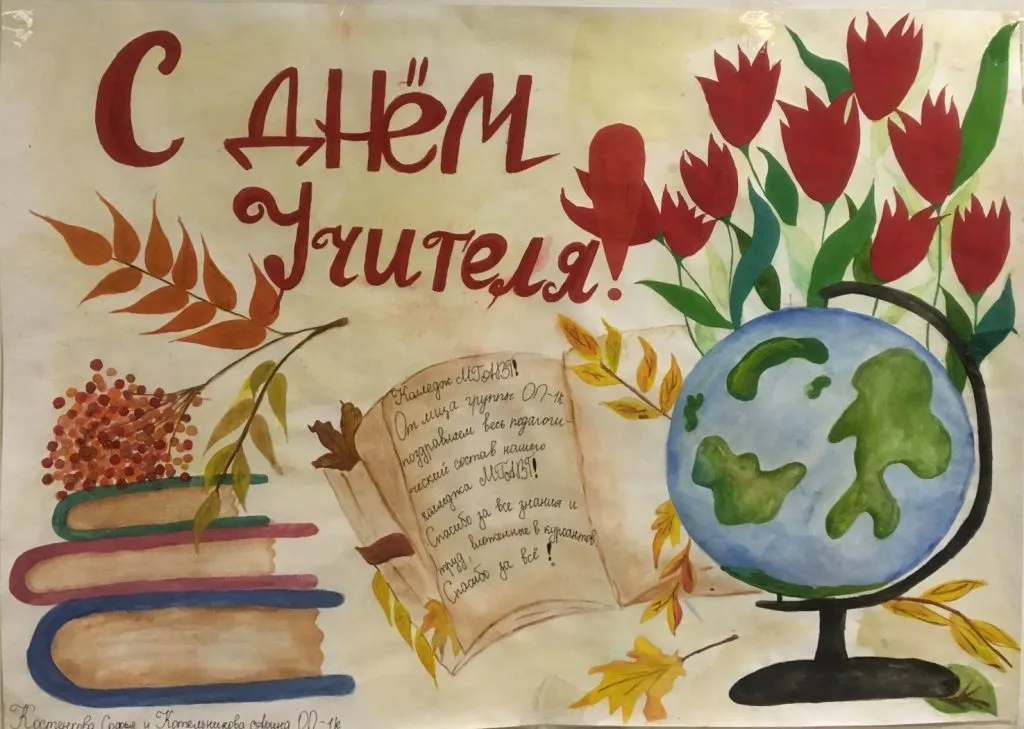 С днём
Учителя!
Колледж МГАВТ!
От лица группы ОП-1к
поздравляем весь педагоги-
ческий состав нашего
колледжа МГАВТ!
Спасибо за все знания и
труд, вложенные в курсантов
Спасибо за всё!
Костенкова Софья и Котельникова Арина ОП-1к